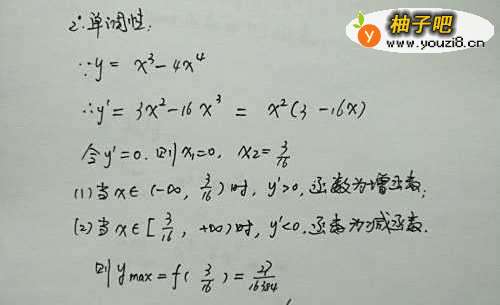 柚子吧
www.youzi8.cn
2°.单调性:
∵y = x³-4x⁴
∴y' = 3x²-16x³ = x²(3-16x)
令y'=0. 则x₁=0, x₂=3/16
(1)当x∈(-∞, 3/16)时, y'>0, 函数为增函数;
(2)当x∈[3/16, +∞)时, y'<0, 函数为减函数.
则ymax = f(3/16) = 27/16384